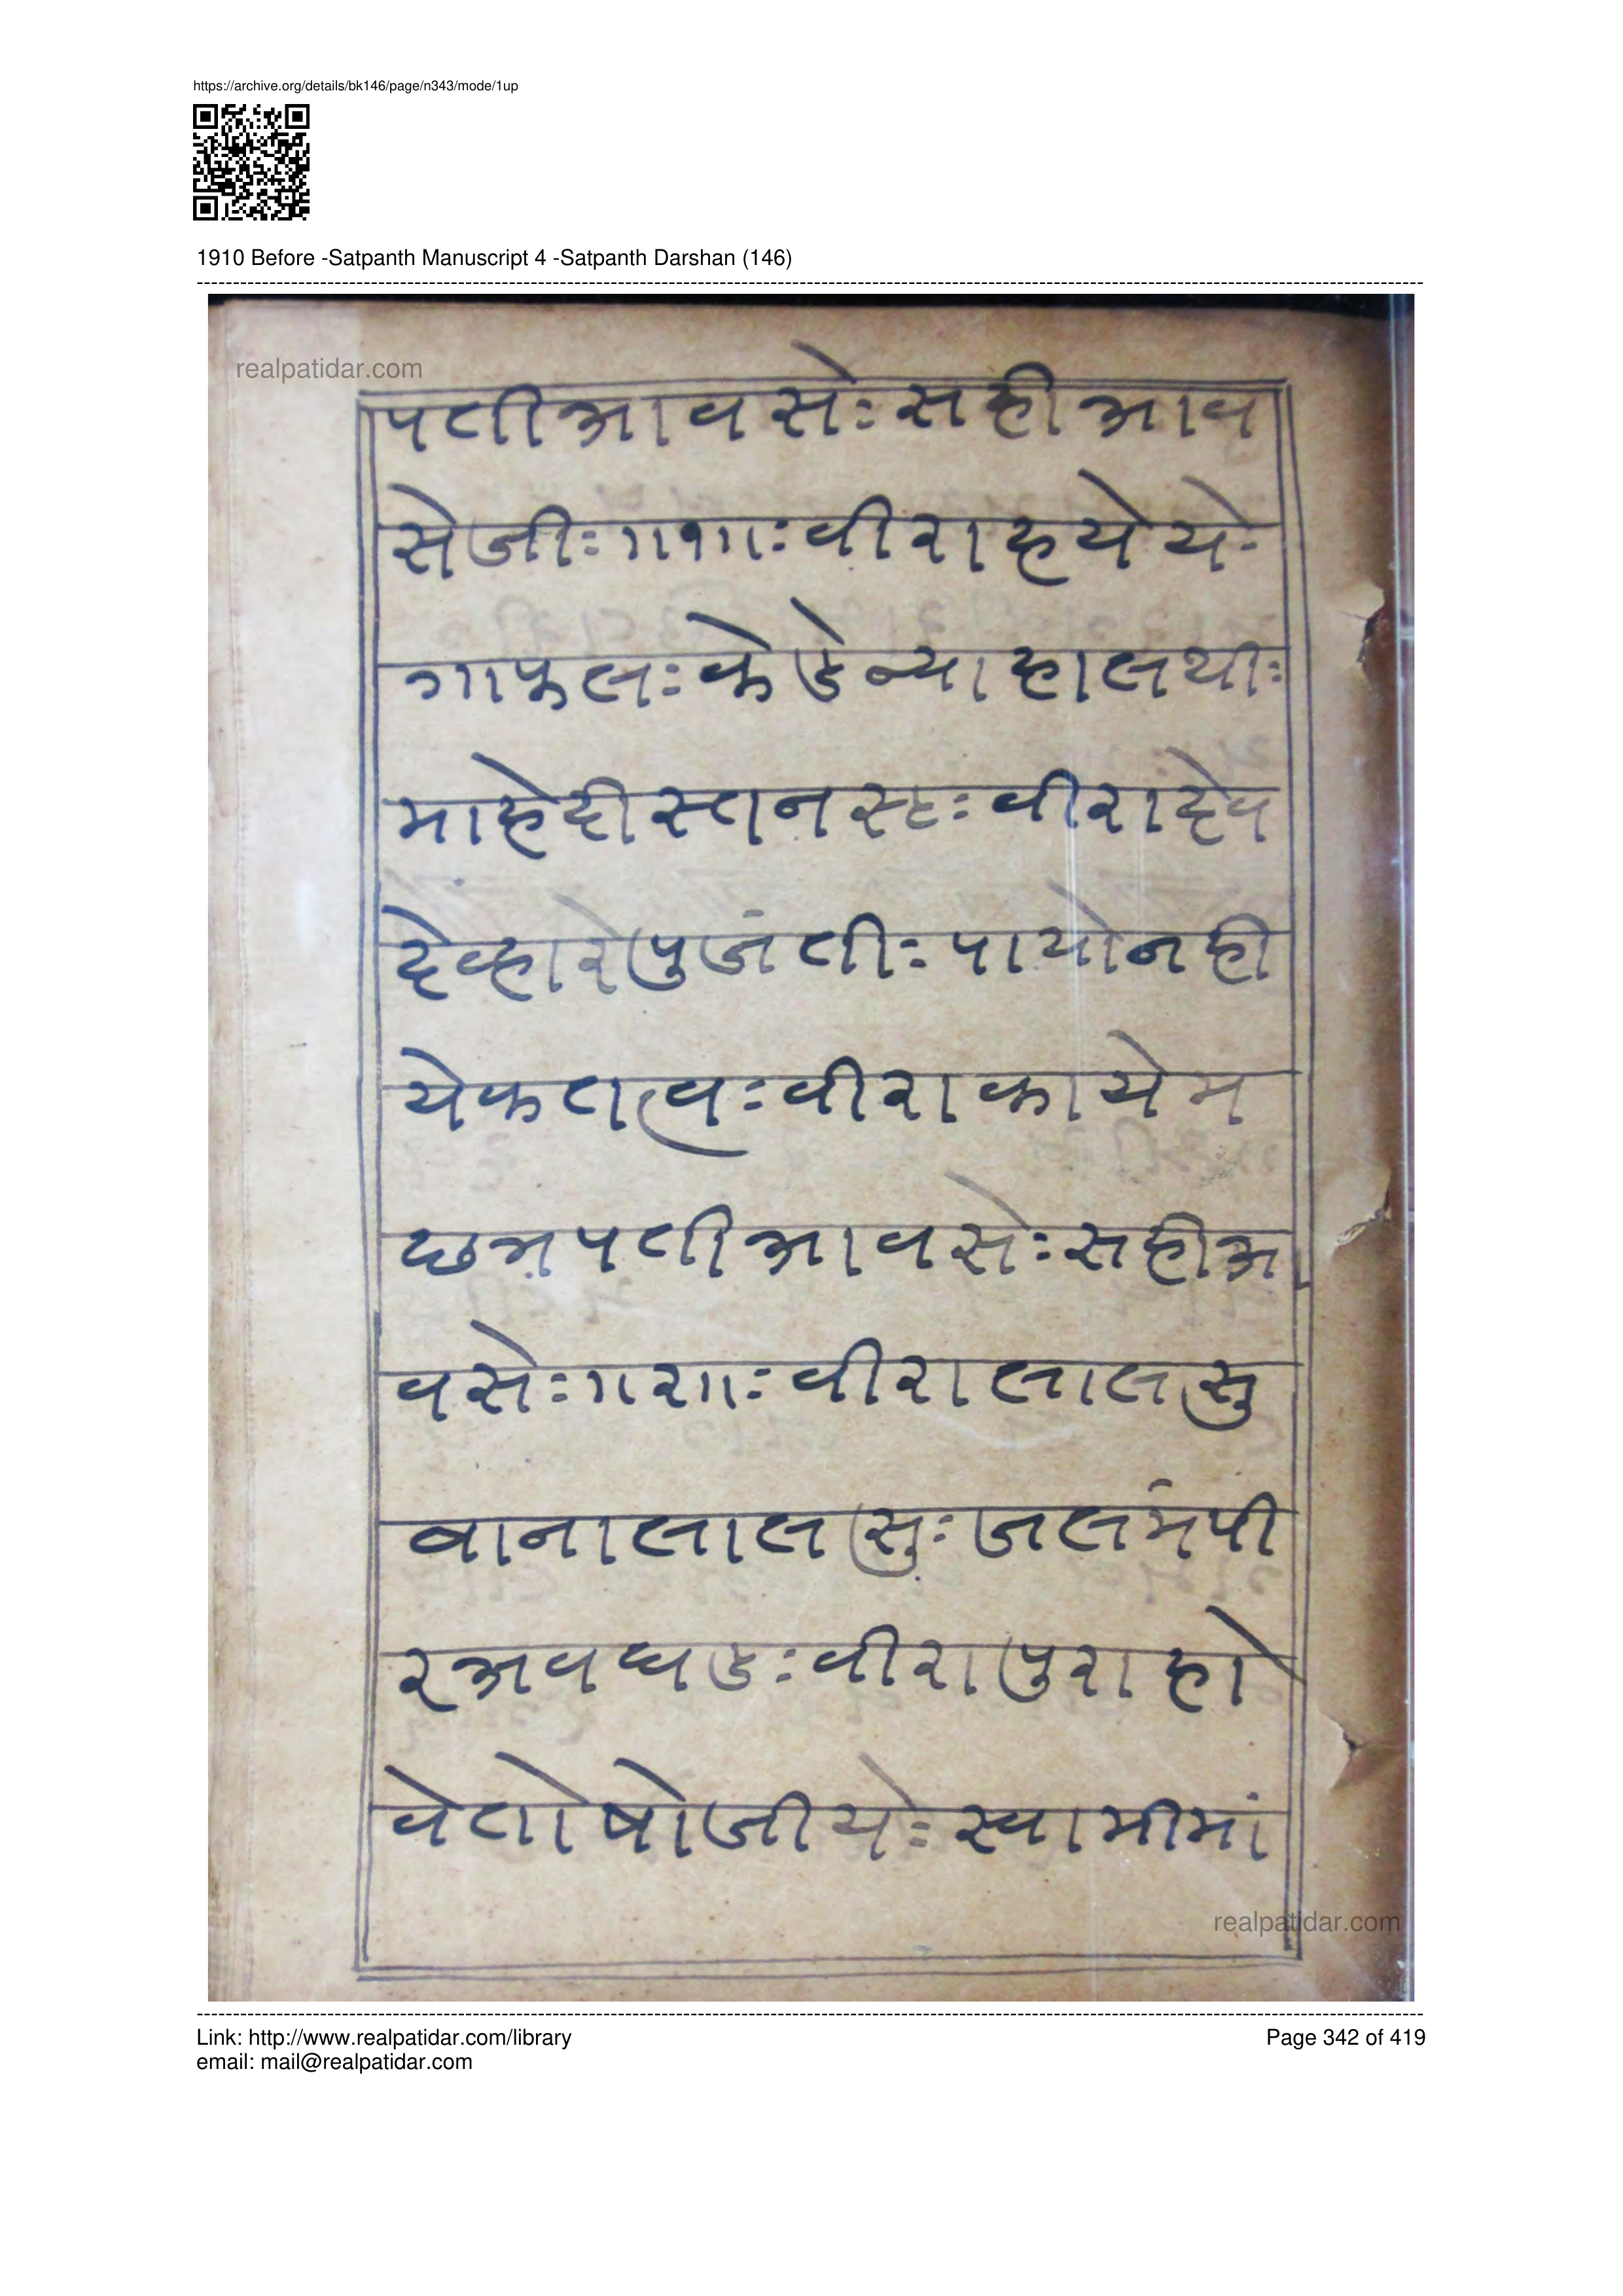 https://archive.org/details/bk146/page/n343/mode/1up
1910 Before -Satpanth Manuscript 4 -Satpanth Darshan (146)
realpatidar.com
पतीआवसेः सहीआव
सेजीः ॥१॥ः वीराहयेये
गाफलः केडेन्याहालथीः
माहेदीस्तान सः वीरादेव
देव्हारेपुजंतीः पायोनही
येकतत्वः वीराकायेम
छत्रपतीआवसेः सहीआ
वसेः ॥२॥ः वीरालालसु
वानालालसुः जलमंपी
रअवघडः वीरापुराहो
वेतोषोजीयेः स्वामीमां
realpatidar.com
Link: http://www.realpatidar.com/library
Page 342 of 419
email: mail@realpatidar.com